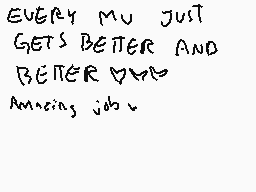 EVERY MV JUST
GETS BETTER AND
BETTER ♡♡♡
Amazing job v